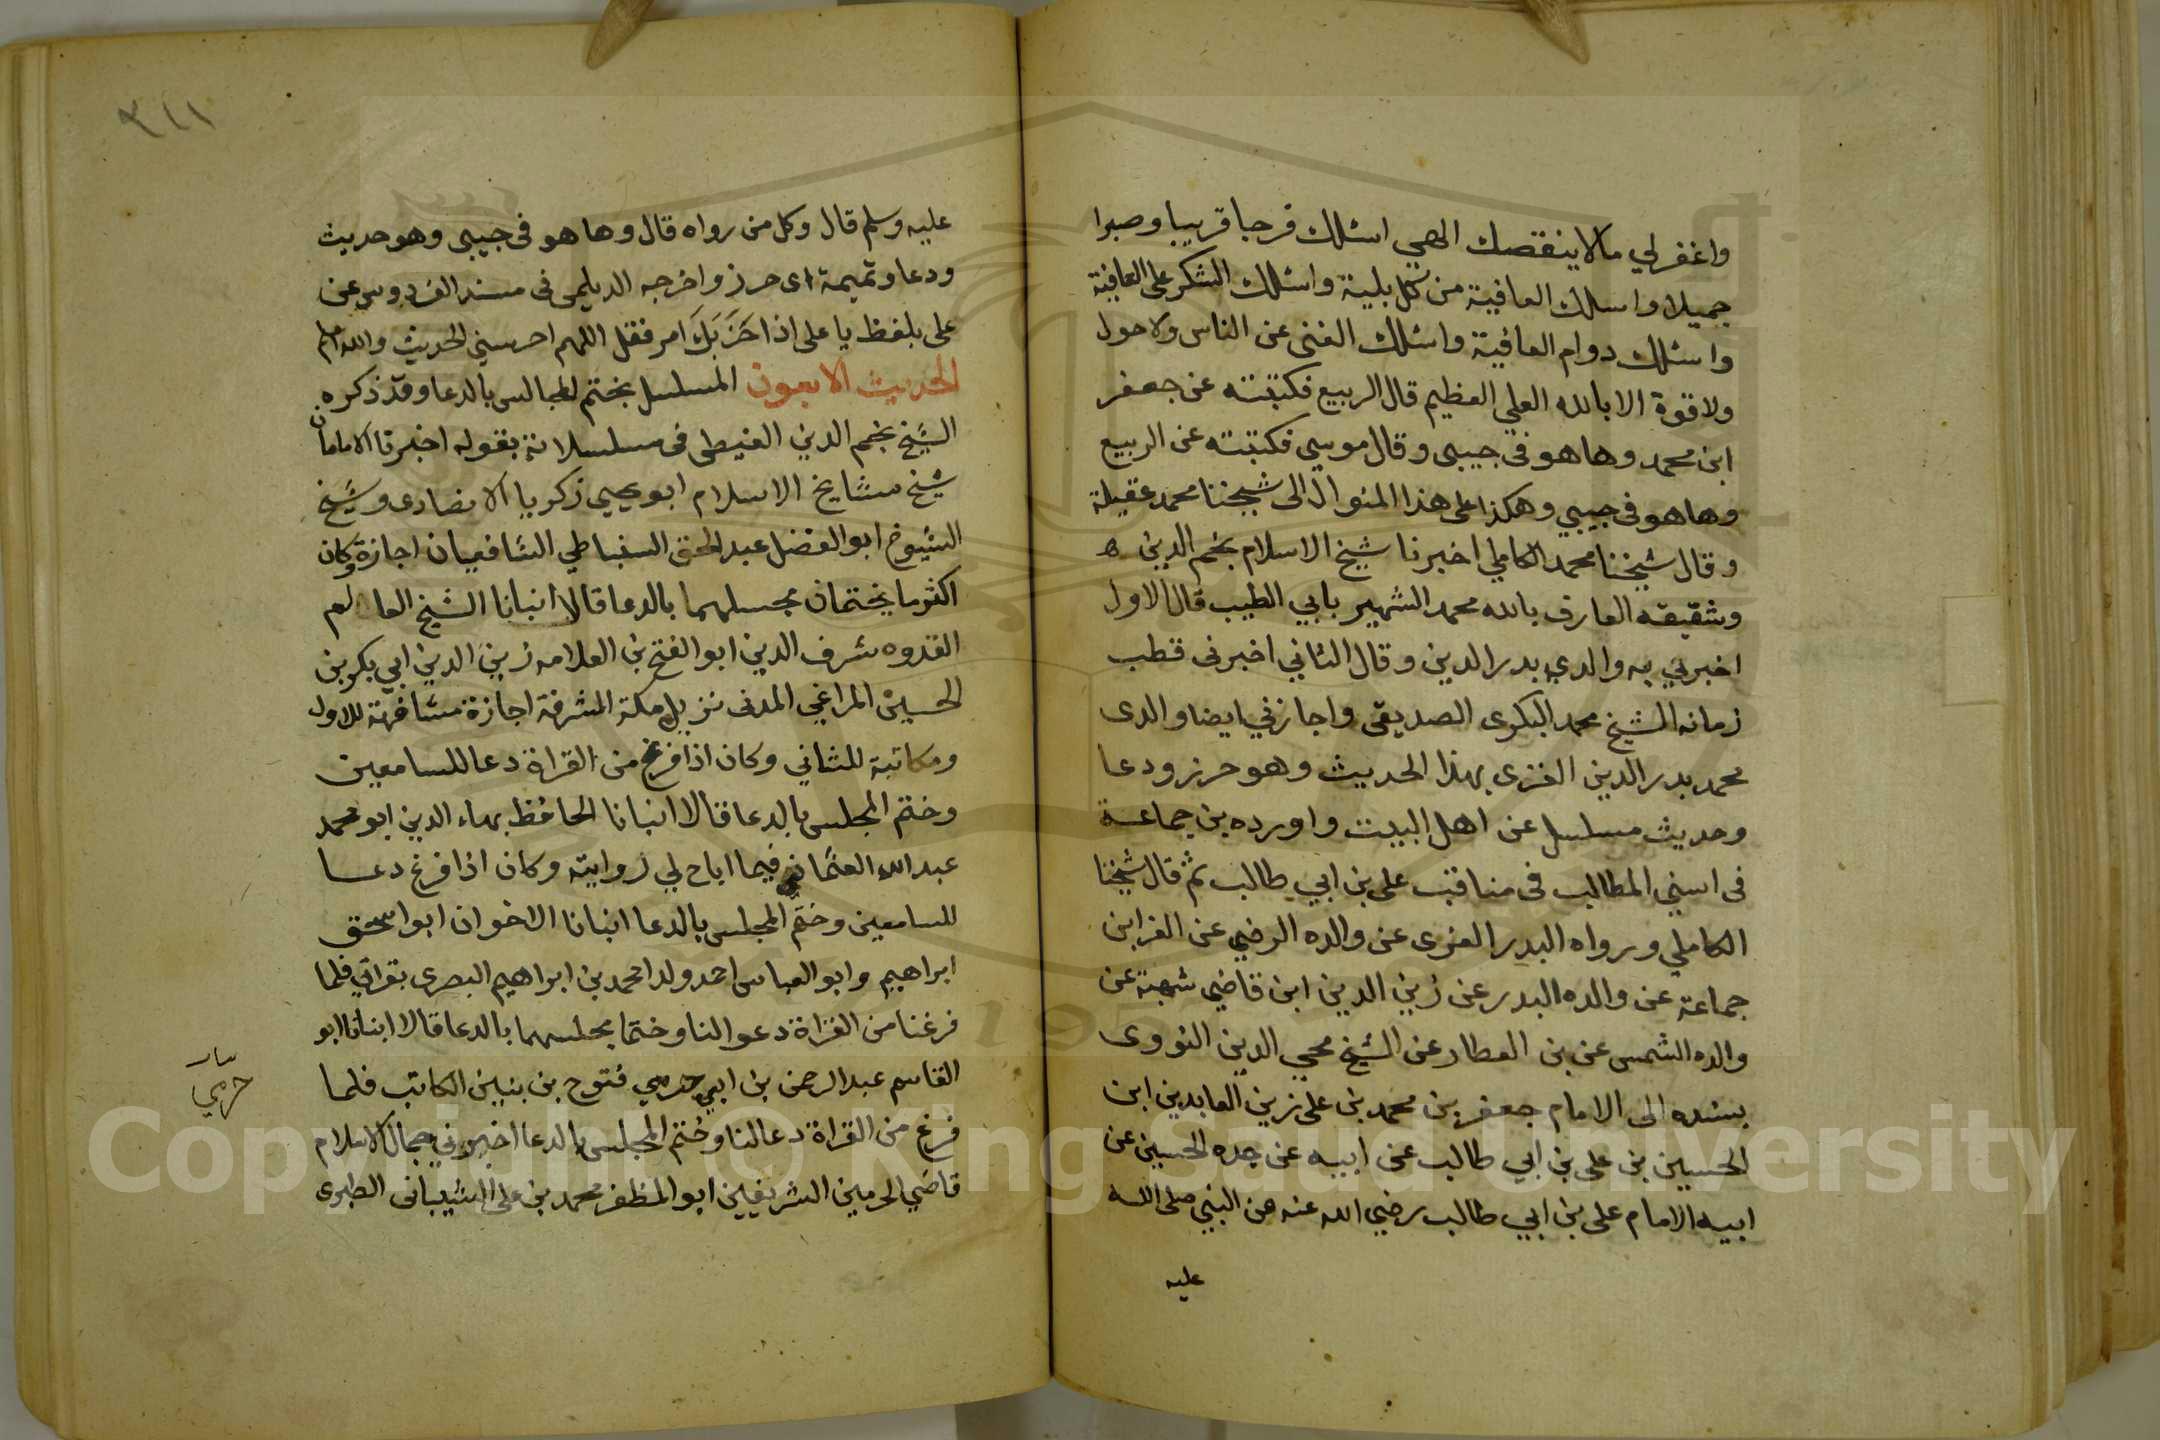 واغفر لي مالا ينقصك الهي اسئلك فرجا قريبا وصبرا
جميلا واسلك العافية من كل بلية واسئلك الشكر على العافية
واسئلك دوام العافية واسئلك الغنى عن الناس ولا حول
ولا قوة الا بالله العلي العظيم قال الربيع فكتبته عن جعفر
ابن محمد وها هو في جيبي وقال موسي فكتبته عن الربيع
وها هو في جيبي وهكذا على هذا المنوال الى شيخنا محمد عقيلة
وقال شيخنا محمد الكاملي اخبرنا شيخ الاسلام نجم الدين
وشقيقه العارف بالله محمد الشهير بابي الطيب قال الاول
اخبرني به والدي بدر الدين وقال الثاني اخبرنى قطب
زمانه الشيخ محمد البكرى الصديقى واجازني ايضا والدى
محمد بدر الدين الغزى بهذا الحديث وهو حرز ودعا
وحديث مسلسل عن اهل البيت واورده بن جماعة
فى اسني المطالب فى مناقب على بن ابي طالب ثم قال شيخنا
الكاملي ورواه البدر الغزى عن والده الرضي عن العز ابن
جماعة عن والده البدر عن زين الدين ابن قاضي شهبة عن
والده الشمس عن بن العطار عن الشيخ محيي الدين النووى
بسنده الى الامام جعفر بن محمد بن على زين العابدين ابن
الحسين بن على بن ابي طالب عن ابيه عن جده الحسين عن
ابيه الامام على بن ابي طالب رضي الله عنه عن النبي صلى الله
عليه
٣١١
عليه وسلم قال وكل من رواه قال وها هو فى جيبى وهو حديث
ودعا وتميمة اى حرز واخرجه الديلمى فى مسند الفردوس عن
على بلفظ يا على اذا حَزَبَكَ امر فقل اللهم احرسني الحديث والله اعلم
الحديث الاربعون المسلسل بختم المجالس بالدعا وقد ذكره
الشيخ نجم الدين الغيطى فى مسلسلاته بقوله اخبرنا الامامان
شيخ مشايخ الاسلام ابو يحيي زكريا الانصارى وشيخ
الشيوخ ابو الفضل عبد الحق السنباطي الشافعيان اجازة وكان
اكثر ما يختمان مجلسهما بالدعا قالا انبانا الشيخ العالم
القدوه شرف الدين ابو الفتح بن العلامه زين الدين ابي بكر بن
الحسين المراغي المدنى نزيل مكة المشرفة اجازة مشافهة للاول
ومكاتبة للثاني وكان اذا فرغ من القراة دعا للسامعين
وختم المجلس بالدعا قالا انبانا الحافظ بهاء الدين ابو محمد
عبد الله العثماني فيما اباح لي روايته وكان اذا فرغ دعا
للسامعين وختم المجلس بالدعا انبانا الاخوان ابو اسحق
ابراهيم وابو العباس احمد ولدا محمد بن ابراهيم البصرى بقراتي فلما
فرغنا من القراة دعو النا وختما مجلسهما بالدعا قالا انبانا ابو
القاسم عبد الرحمن بن ابي حرمي فتوح بن بنين الكاتب فلما
فرغ من القراة دعا لنا وختم المجلس بالدعا اخبرني جمال الاسلام
قاضي الحرمين الشريفين ابو المظفر محمد بن على الشيباني الطبرى
حرمي
Copyright © King Saud University